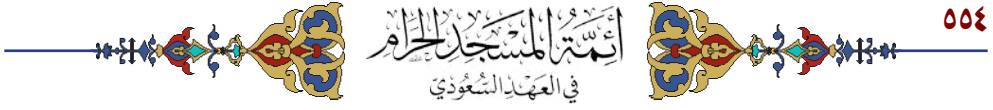 ٥٥٤
أئمة المسجد الحرام
في العهد السعودي